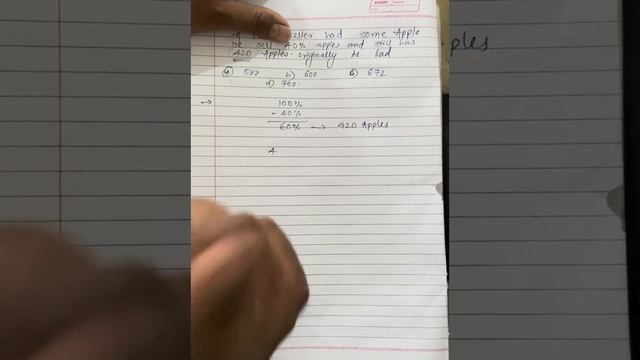 had some Apple
he sell 40% apples and still has
420 Apples originally he had
a) b) 600 c) 672
d) 700
→ 100%
- 40%
60% → 420 Apples
4
ples